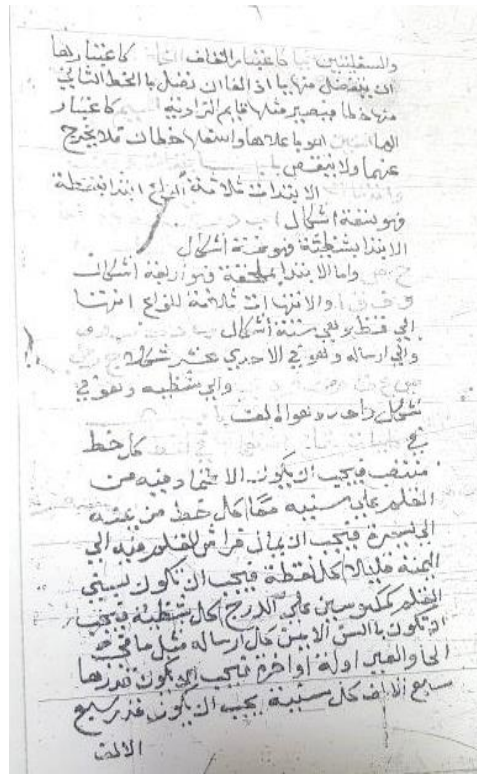 والسفليتين كاعتبار القاف كاعتبار لها
ان ينفصل منها اذا الفا ان نصل بالخط الثاني
منها خطا فيصير مثلثا قايم الزاوية كاعتبار
الها اليمين هو باعلاها واسفلها خطان فلا يخرج
عنهما ولا ينقص
الابتدات ثلاثة انواع ابتدا بنقطة
فهو بتسعة اشكال
الابتدا بشظية فهو خمسة اشكال
واما الابتدا بملحقة فهو اربعة اشكال
والانتهات ثلاثة انواع انتها
الي قط وهي ستة أشكال
والي ارساله وهو في الاحدي عشر شكلا
والي شظيه وهو في
شكل واحد وهو الالف
كل خط
منتصب فيجب ان يكون الاعتماد فيه من
القلم علي سنيه معا كل خط من يمنه
الي يسرة فيجب ان يمال القلم فيه الي
اليمنة قليلا كل نقطة فيجب ان تكون بسني
القلم كمكبوسين علي الدرج كل شظية فيجب
ان تكون بالسن الايمن كل ارساله مثل ما في
الحا والعين اولة اواخرة فيجب ان يكون قدرها
سبع الالف كل سنينة يجب ان يكون قدر سبع
الالف